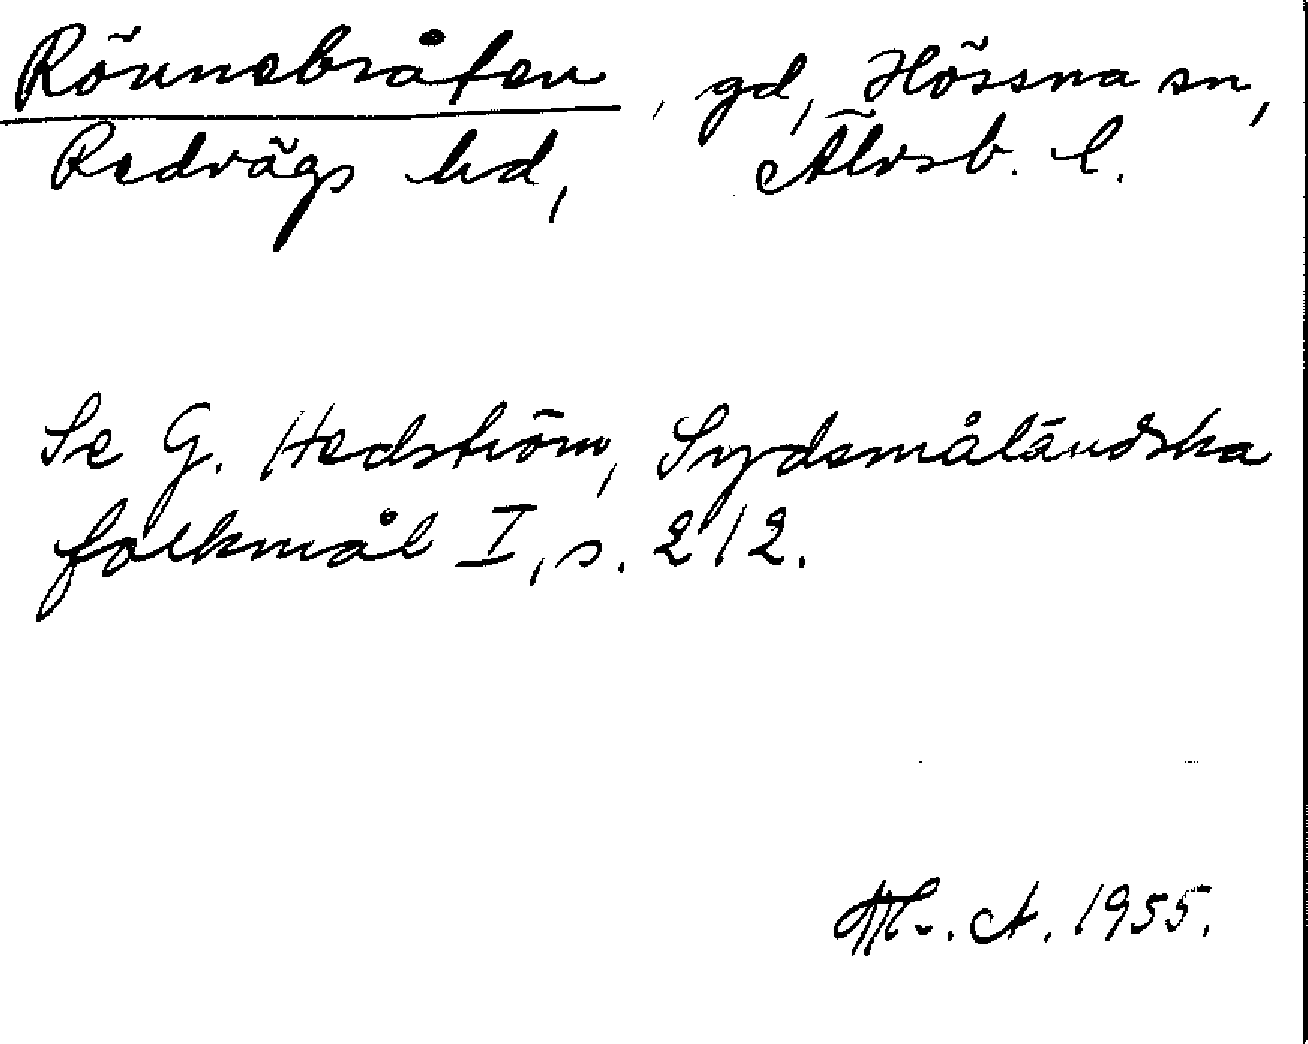 Rönnebråten, gd, Hössna sn,
Redvägs hd, Älvsb. l.
Se G. Hedström, Sydsmåländska
folkmål I, s. 212.
M. A. 1955.